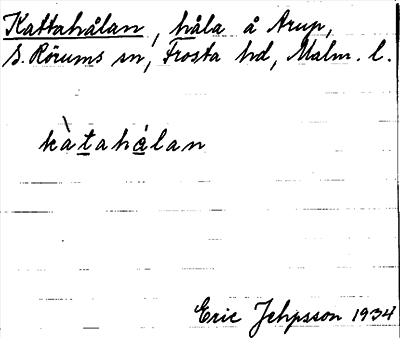 Kattahålan, håla å Arup,
S. Rörums sn, Frosta hd, Malm. l.
kàtahålan
Eric Jehpsson 1934